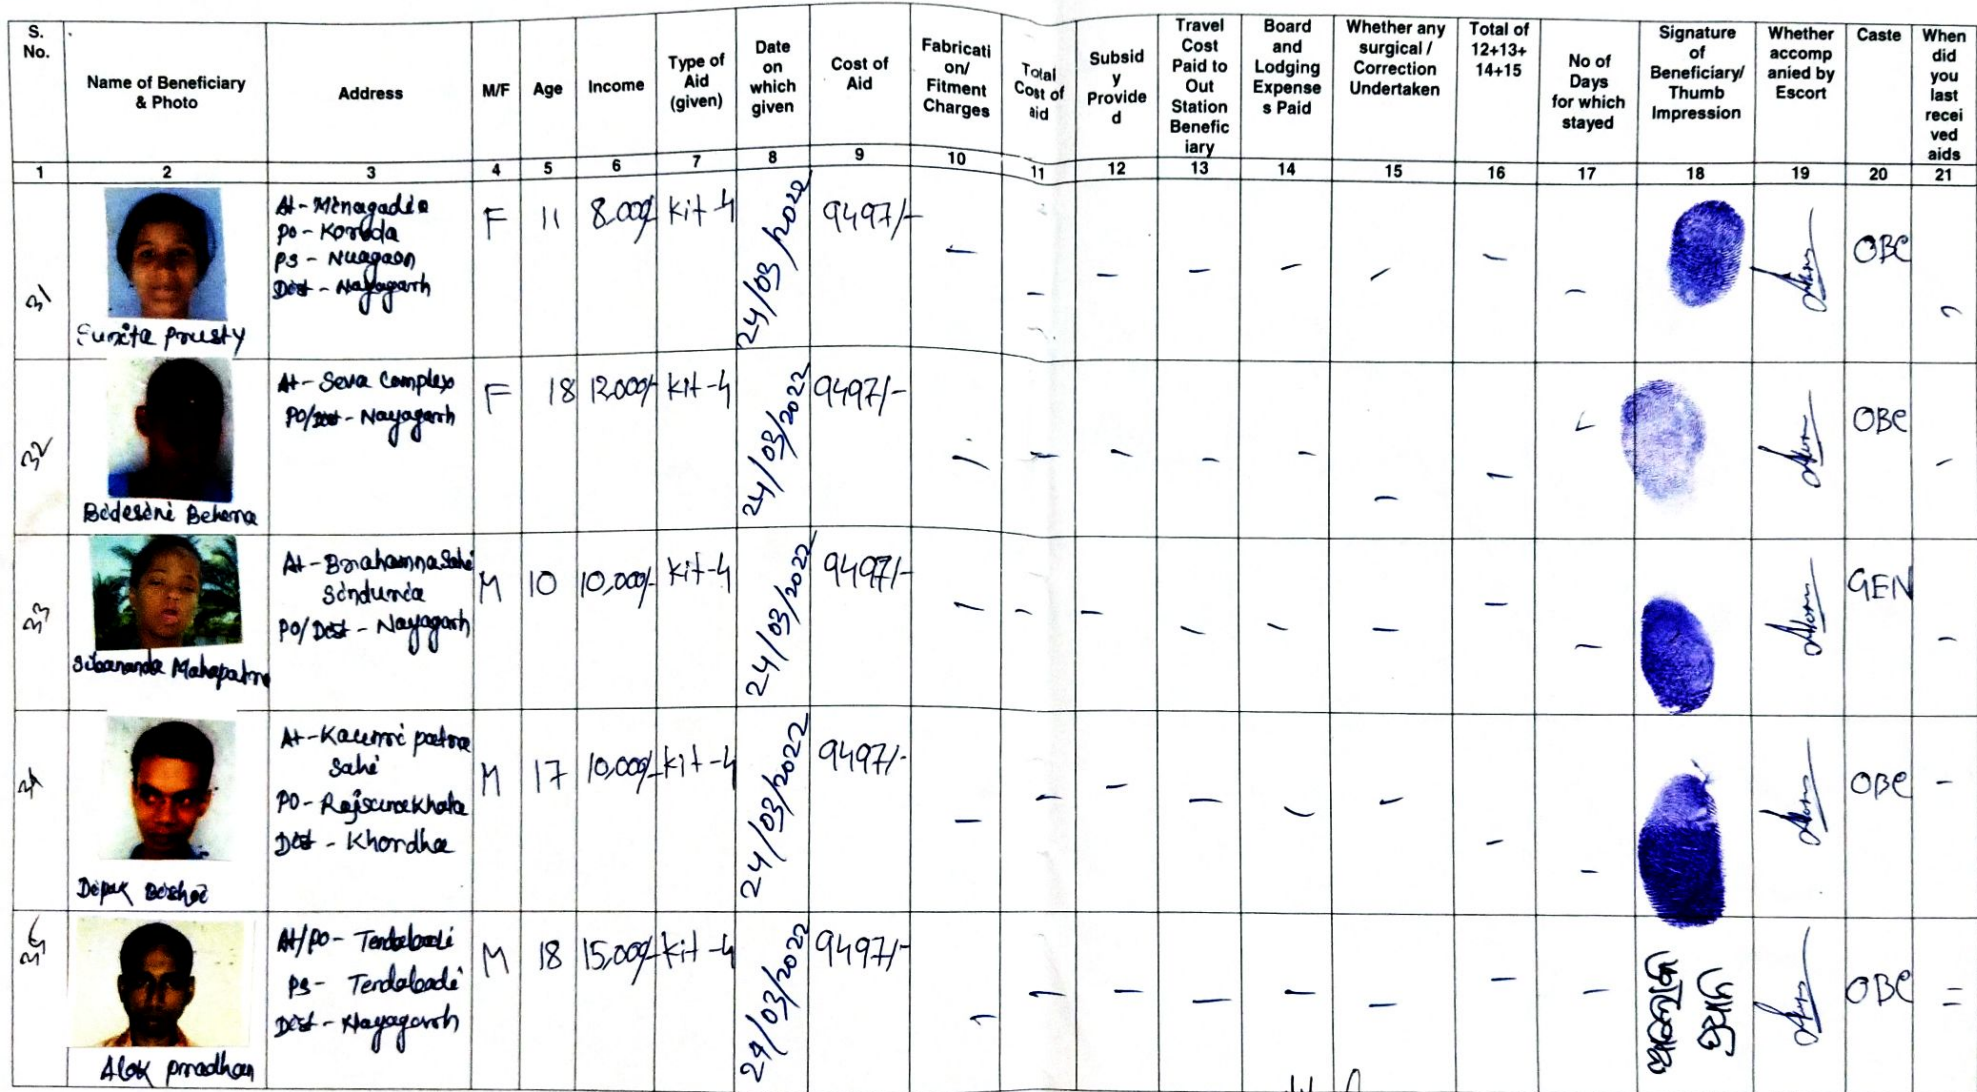 S. No.
Name of Beneficiary & Photo
Address
M/F
Age
Income
Type of Aid (given)
Date on which given
Cost of Aid
Fabricati on/ Fitment Charges
Total Cost of aid
Subsid y Provide d
Travel Cost Paid to Out Station Benefic iary
Board and Lodging Expense s Paid
Whether any surgical / Correction Undertaken
Total of 12+13+ 14+15
No of Days for which stayed
Signature of Beneficiary/ Thumb Impression
Whether accomp anied by Escort
Caste
When did you last recei ved aids
1 2 3 4 5 6 7 8 9 10 11 12 13 14 15 16 17 18 19 20 21
31
Sunita Prusty
At- Minagadia
PO - Korada
PS - Nuagaon
Dist - Nayagarh
F 11 8.000/- Kit-4 24/03/2022 9497/- - - - - - - - - OBC
32
Bidesini Behera
At- Seva Complex
PO/Dist - Nayagarh
F 18 12000/- Kit-4 24/03/2022 9497/- - - - - - - - - OBC -
33
Sibananda Mahapatra
At- Brahamna Sahi
Sinduria
PO/Dist - Nayagarh
M 10 10,000/- Kit-4 24/03/2022 9497/- - - - - - - - - GEN -
34
Dipak Bishoi
At- Kaumri patna
Sahi
PO- Rajsunakhala
Dist - Khordha
M 17 10,000/- Kit-4 24/03/2022 9497/- - - - - - - - - OBC -
35
Alok pradhan
At/PO- Tendabadi
PS- Tendabadi
Dist - Nayagarh
M 18 15,000/- Kit-4 24/03/2022 9497/- - - - - - - - - OBC =